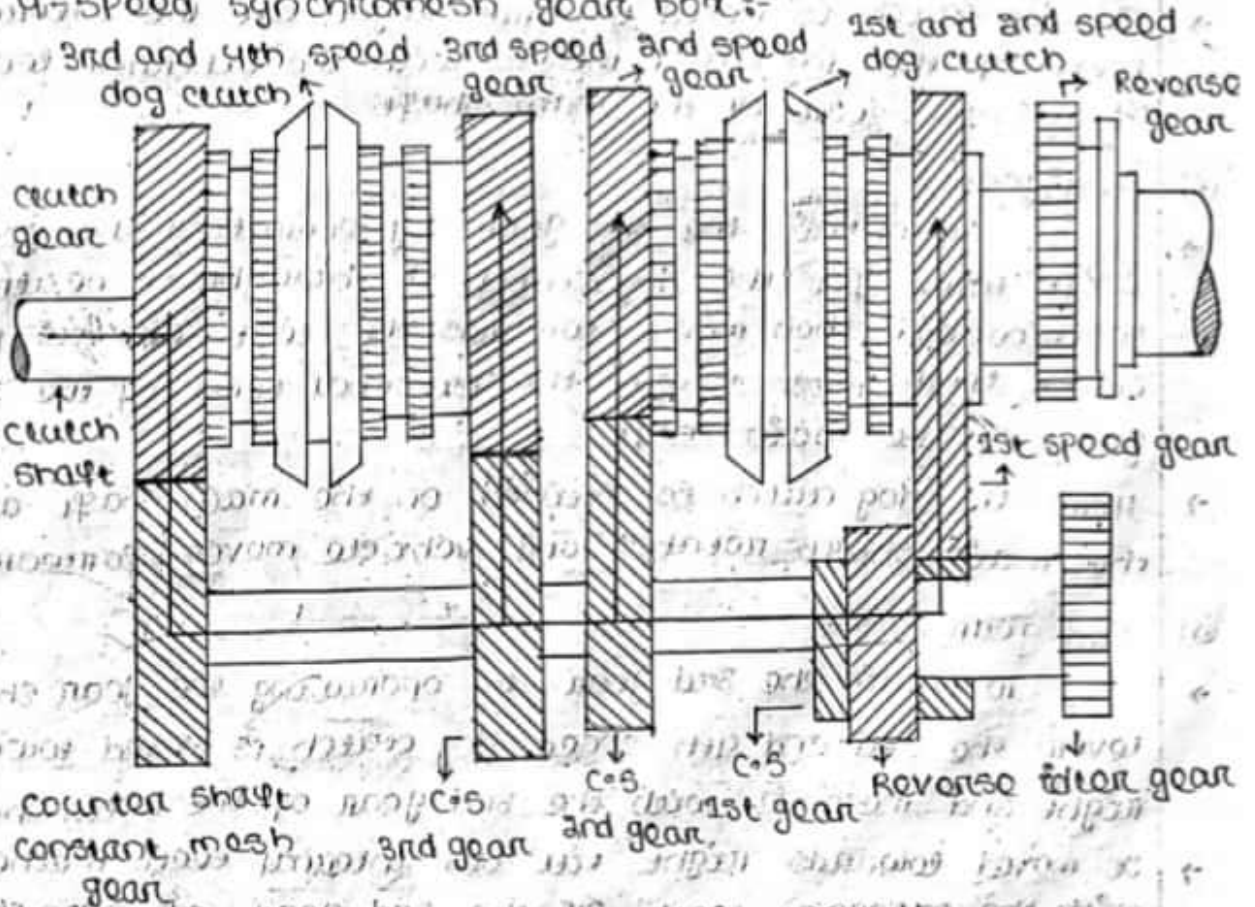 Speed synchromesh gear box:-
3rd and 4th speed
dog clutch
3rd speed
gear
2nd speed
gear
1st and 2nd speed
dog clutch
Reverse
gear
clutch
gear
clutch
shaft
1st speed gear
counter shaft
constant mesh
gear
C.S
3rd gear
C.S
2nd gear
C.S
1st gear
Reverse idler gear